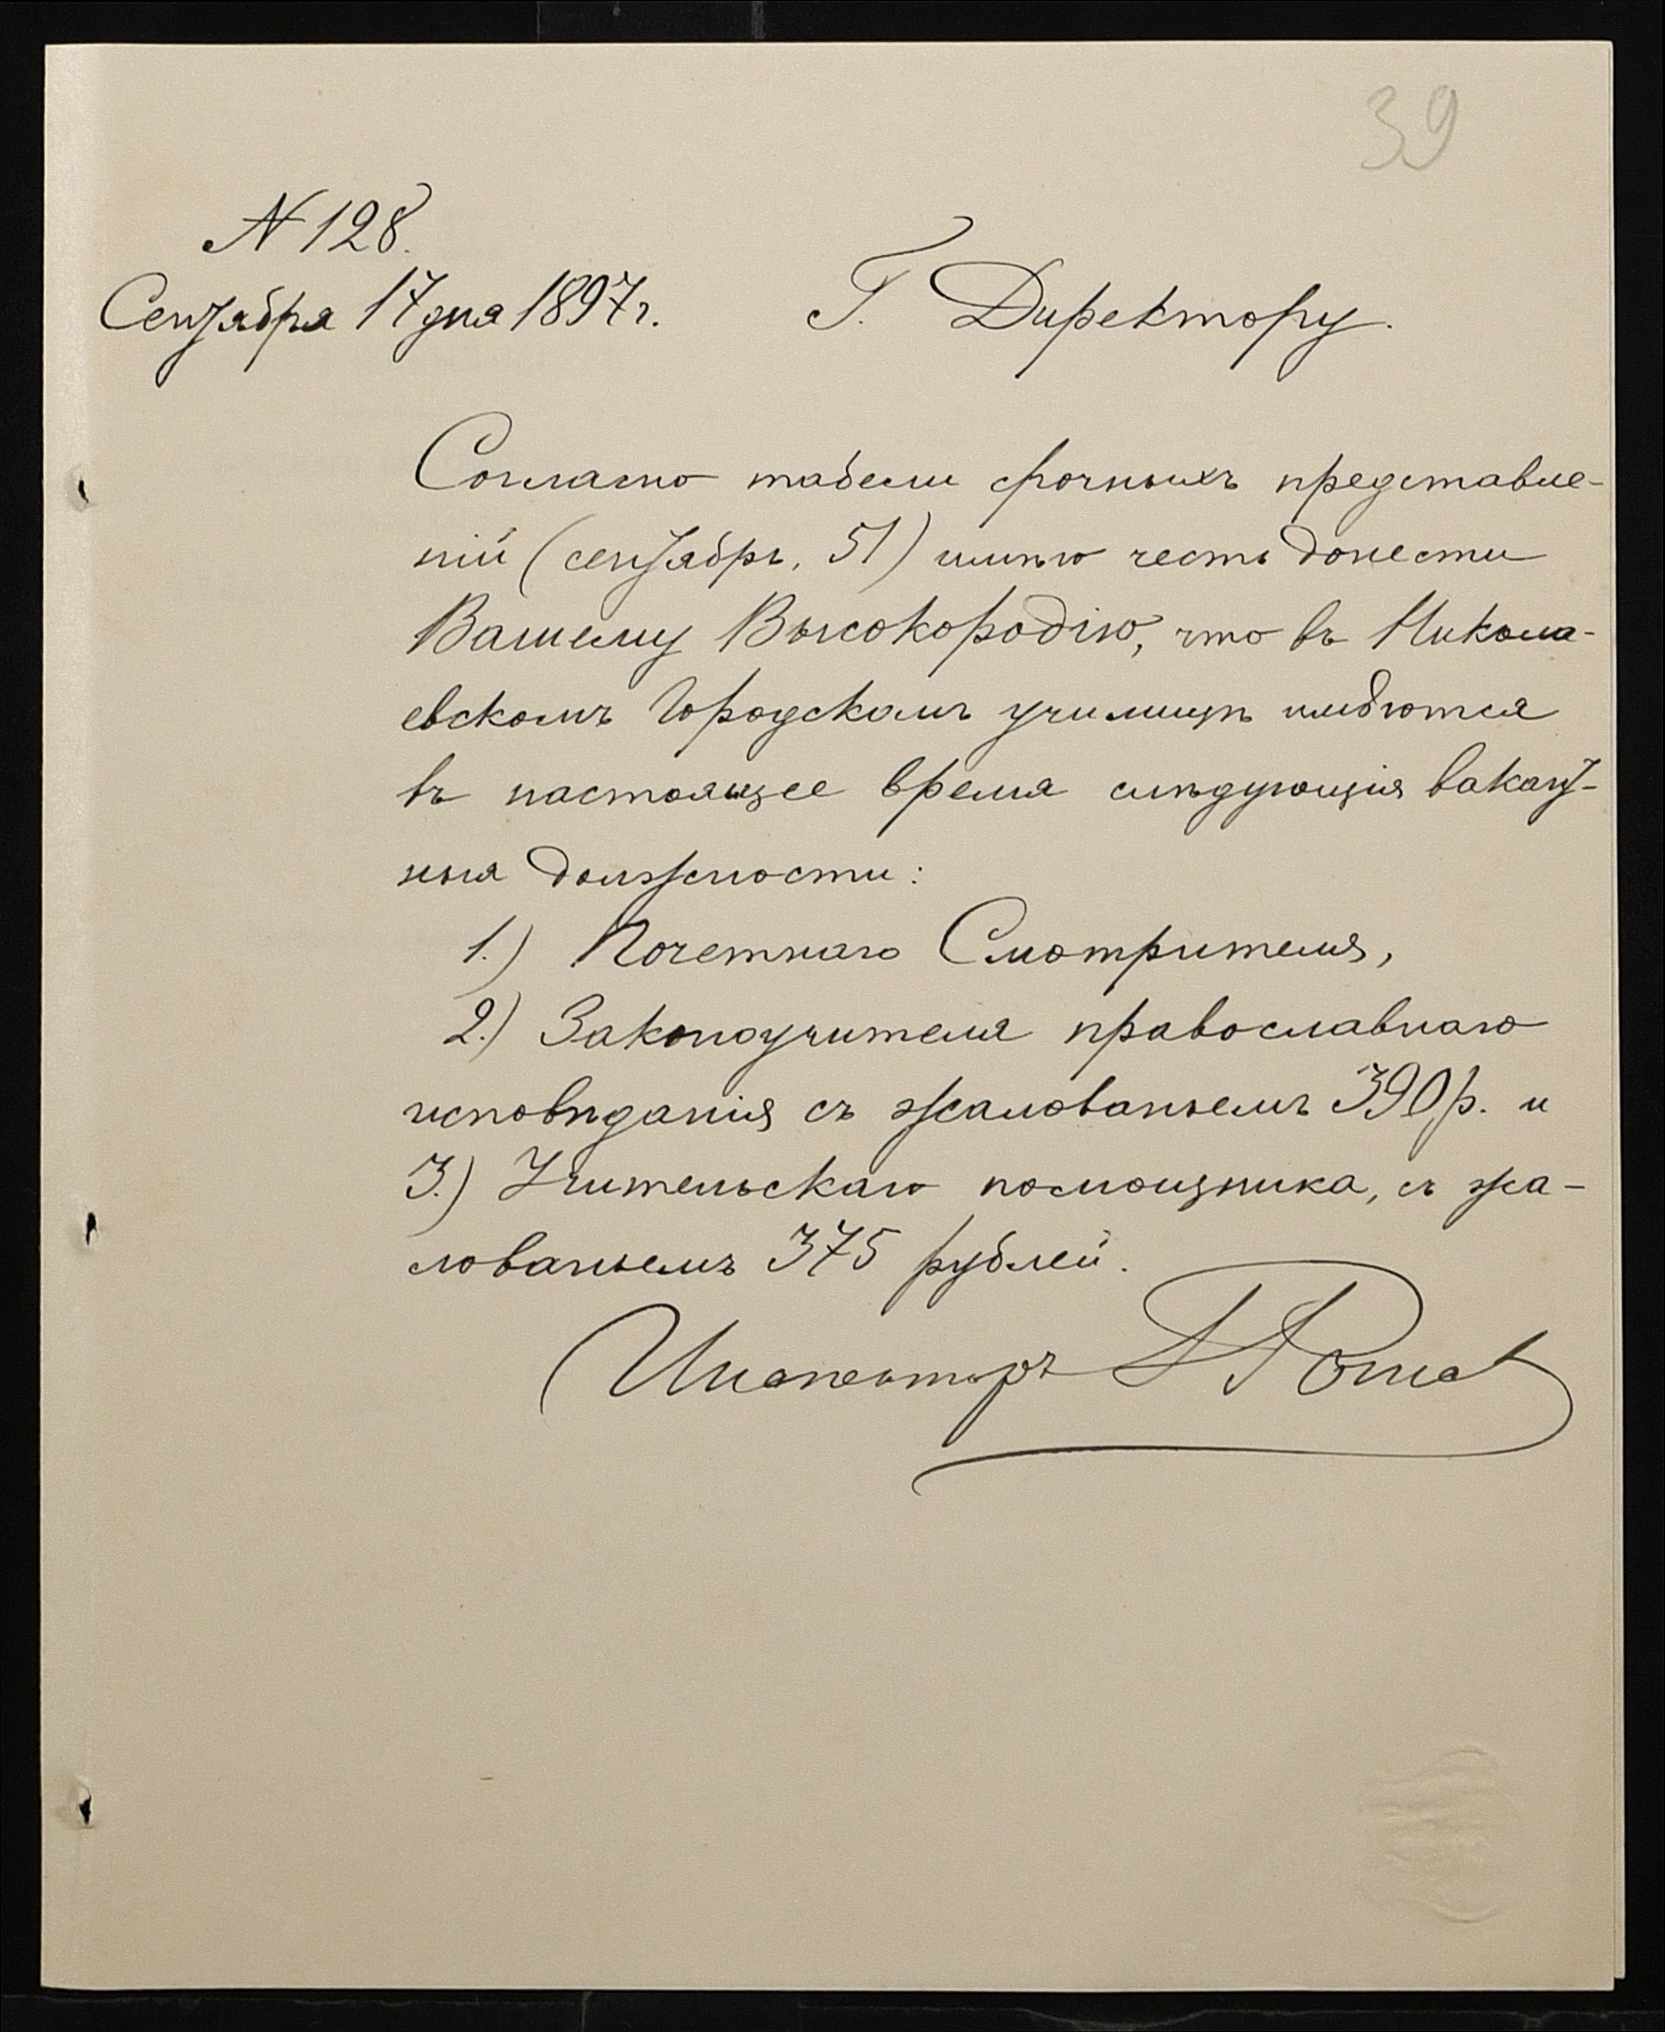 39
N 128.
Сентября 17 дня 1897 г.
Г. Директору.
Согласно табели срочныхъ представле-
ній (сентябрь, 51) имѣю честь донести
Вашему Высокородію, что въ Никола-
евскомъ Городскомъ училищѣ имѣются
въ настоящее время слѣдующія вакант-
ныя должности:
1.) Почетнаго Смотрителя,
2.) Законоучителя православнаго
исповѣданія съ жалованьемъ 390 р. и
3.) Учительскаго помощника, съ жа-
лованьемъ 375 рублей.
Инспекторъ